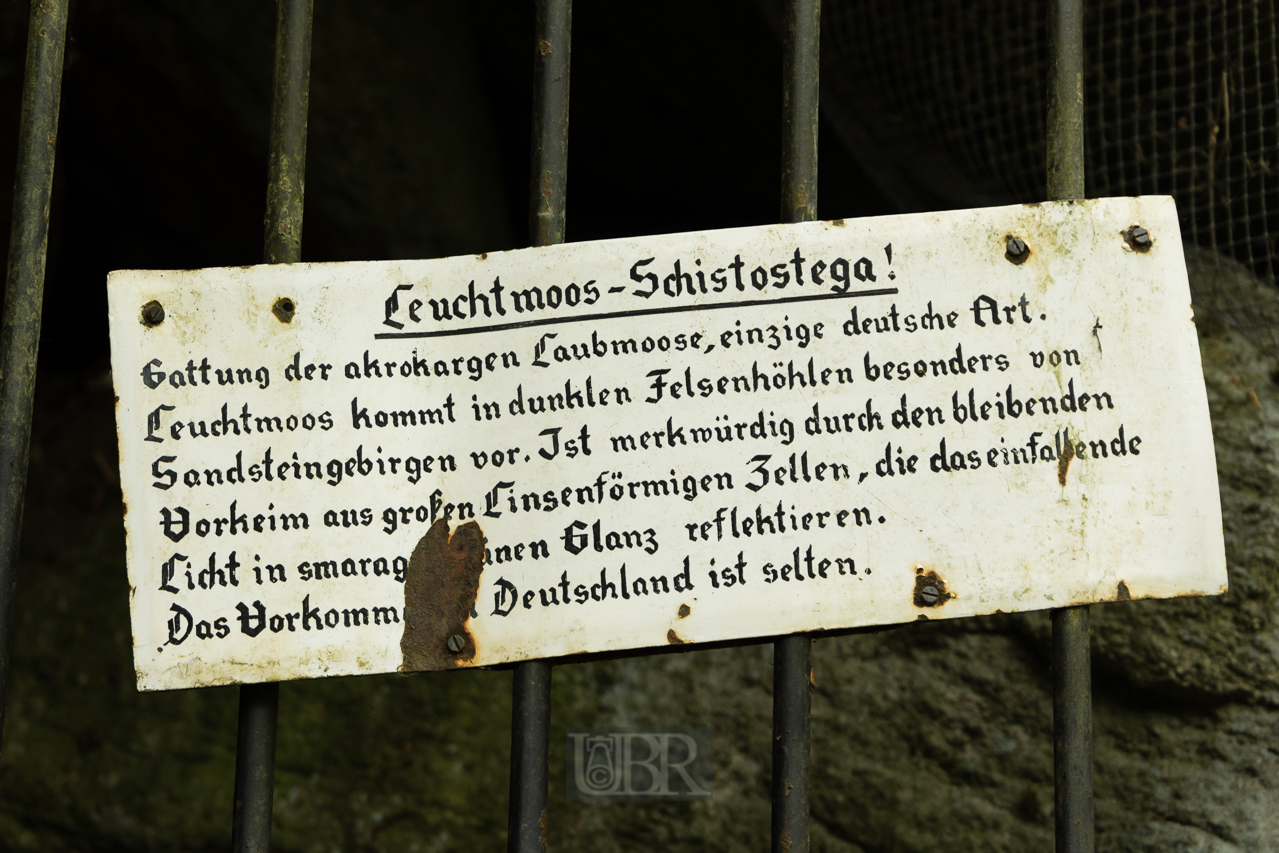 Leuchtmoos-Schistostega!
Gattung der akrokargen Laubmoose, einzige deutsche Art.
Leuchtmoos kommt in dunklen Felsenhöhlen besonders von
Sandsteingebirgen vor. Ist merkwürdig durch den bleibenden
Vorkeim aus großen Linsenförmigen Zellen, die das einfallende
Licht in smarag nen Glanz reflektieren.
Das Vorkomm Deutschland ist selten.
UBR